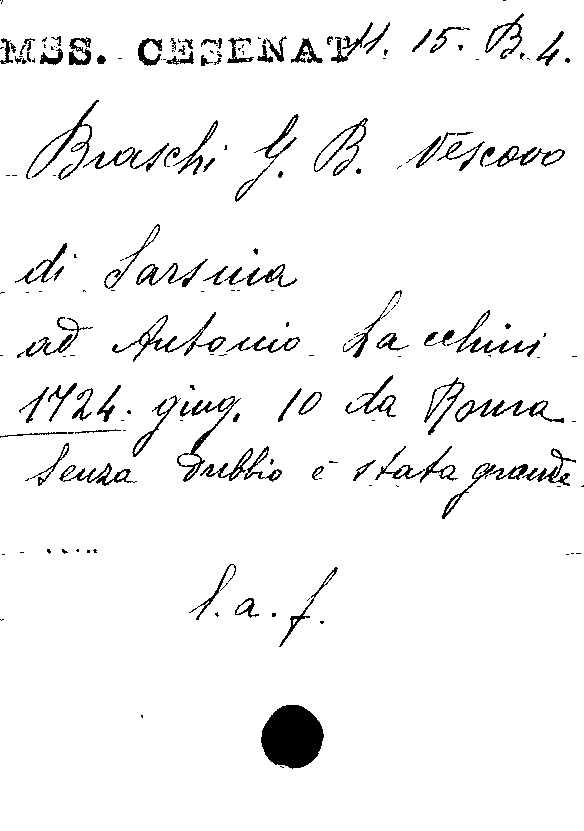 MSS. CESENAT 11. 15. B. 4.
Braschi G. B. Vescovo
di Sarsina
ad Antonio Lacchini
1724. giug. 10 da Roma
Senza dubbio è stata grande
.....
l. a. f.